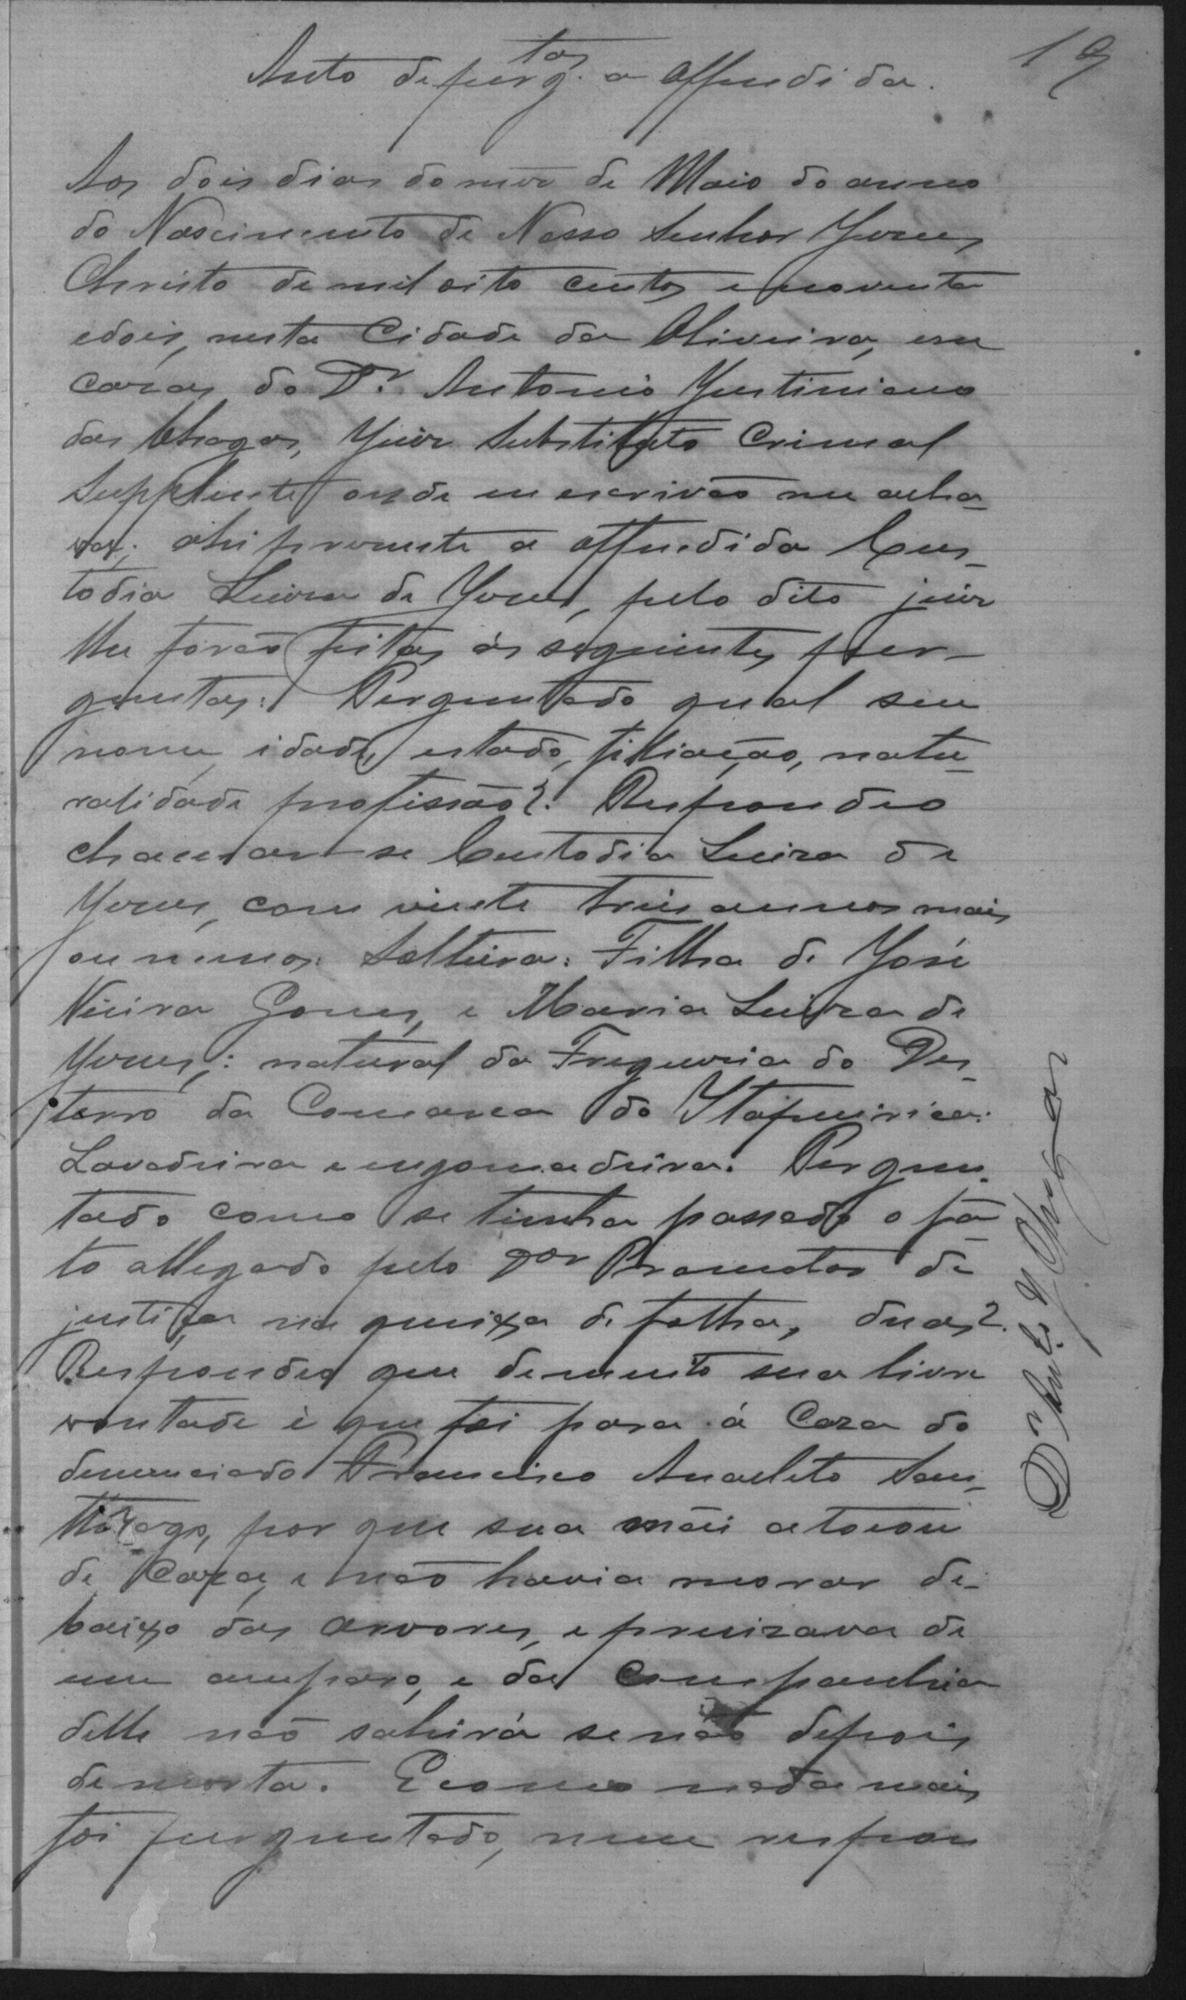 19
Auto de perg.tas a offendida.
Aos dois dias do mez de Maio do anno
do Nascimento de Nosso Senhor Jezus
Christo de mil oito centos e noventa
e dois, nesta Cidade da Oliveira, em
cazas do Dr. Antonio Justiniano
das Chagas, Juiz Substituto Criminal
Supplente onde eu escrivão me acha-
va; ahi prezente a offendida Cus-
todia Luiza de Jezus, pelo dito juiz
lhe forão feitas ás seguintes per-
guntas: Perguntado qual seu
nome, idade, estado, filiação, natu-
ralidade profissão? Respondeo
chamar-se Custodia Luiza de
Jezus, com vinte treis annos mais
ou menos: Solteira: Filha de José
Vieira Gomes, e Maria Luiza de
Jezus; natural da Freguezia do Des-
terro da Comarca do Itapecirica:
Lavadeira e engomadeira. Pergun-
tado como se tinha passado o fa-
to allegado pelo Promotor de
justiça na queixa de folha, duas?
Respondeo que de muito sua livre
vontade é que foi para á Caza do
denunciado Francisco Anacleto San-
thiago, por que sua mãi a tocou
de Caza, e não havia morar de-
baixo das arvores, e precizava de
um amparo, e da Companhia
delle não sahirá senão depois
de morta. E como nada mais
foi perguntado, nem respon
Chagas